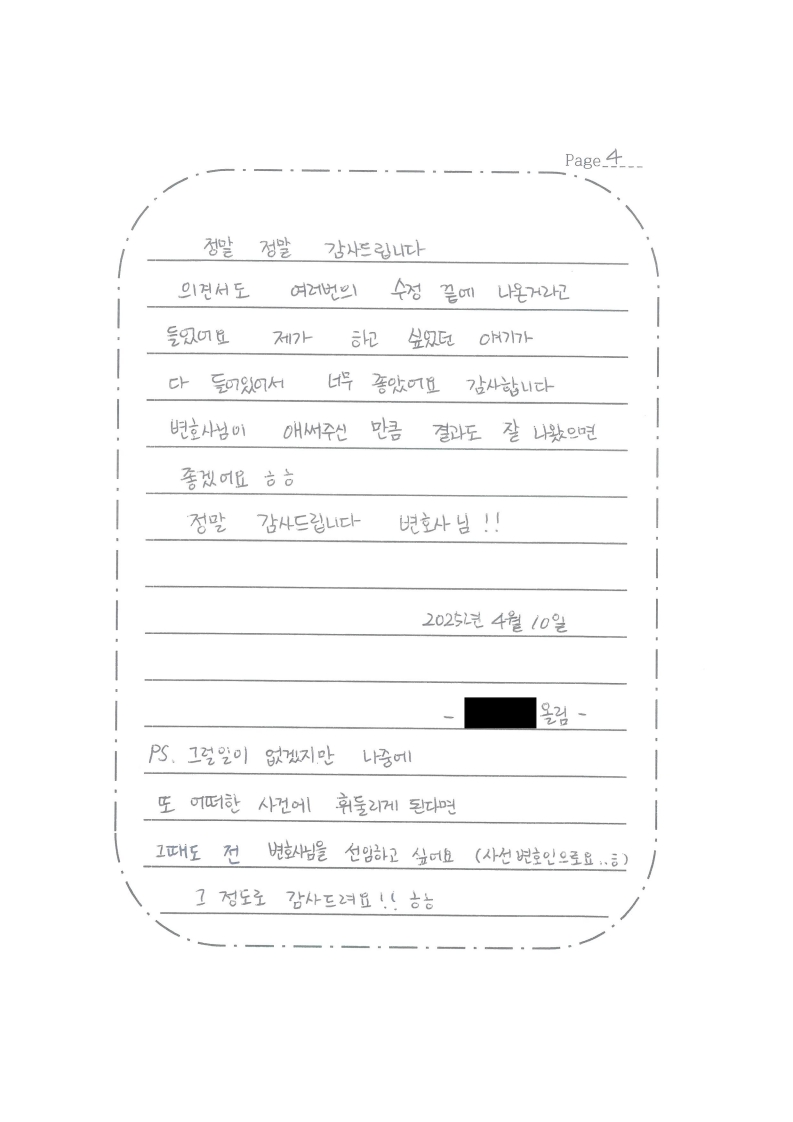 Page 4
정말 정말 감사드립니다
의견서도 여러번의 수정 끝에 나온거라고
들었어요 제가 하고 싶었던 얘기가
다 들어있어서 너무 좋았어요 감사합니다
변호사님이 애써주신 만큼 결과도 잘 나왔으면
좋겠어요 ㅎㅎ
정말 감사드립니다 변호사님 !!
2025년 4월 10일
- 올림 -
PS. 그럴일이 없겠지만 나중에
또 어떠한 사건에 휘둘리게 된다면
그때도 전 변호사님을 선임하고 싶어요 (사선변호인으로요..ㅎ)
그 정도로 감사드려요!! ㅎㅎ